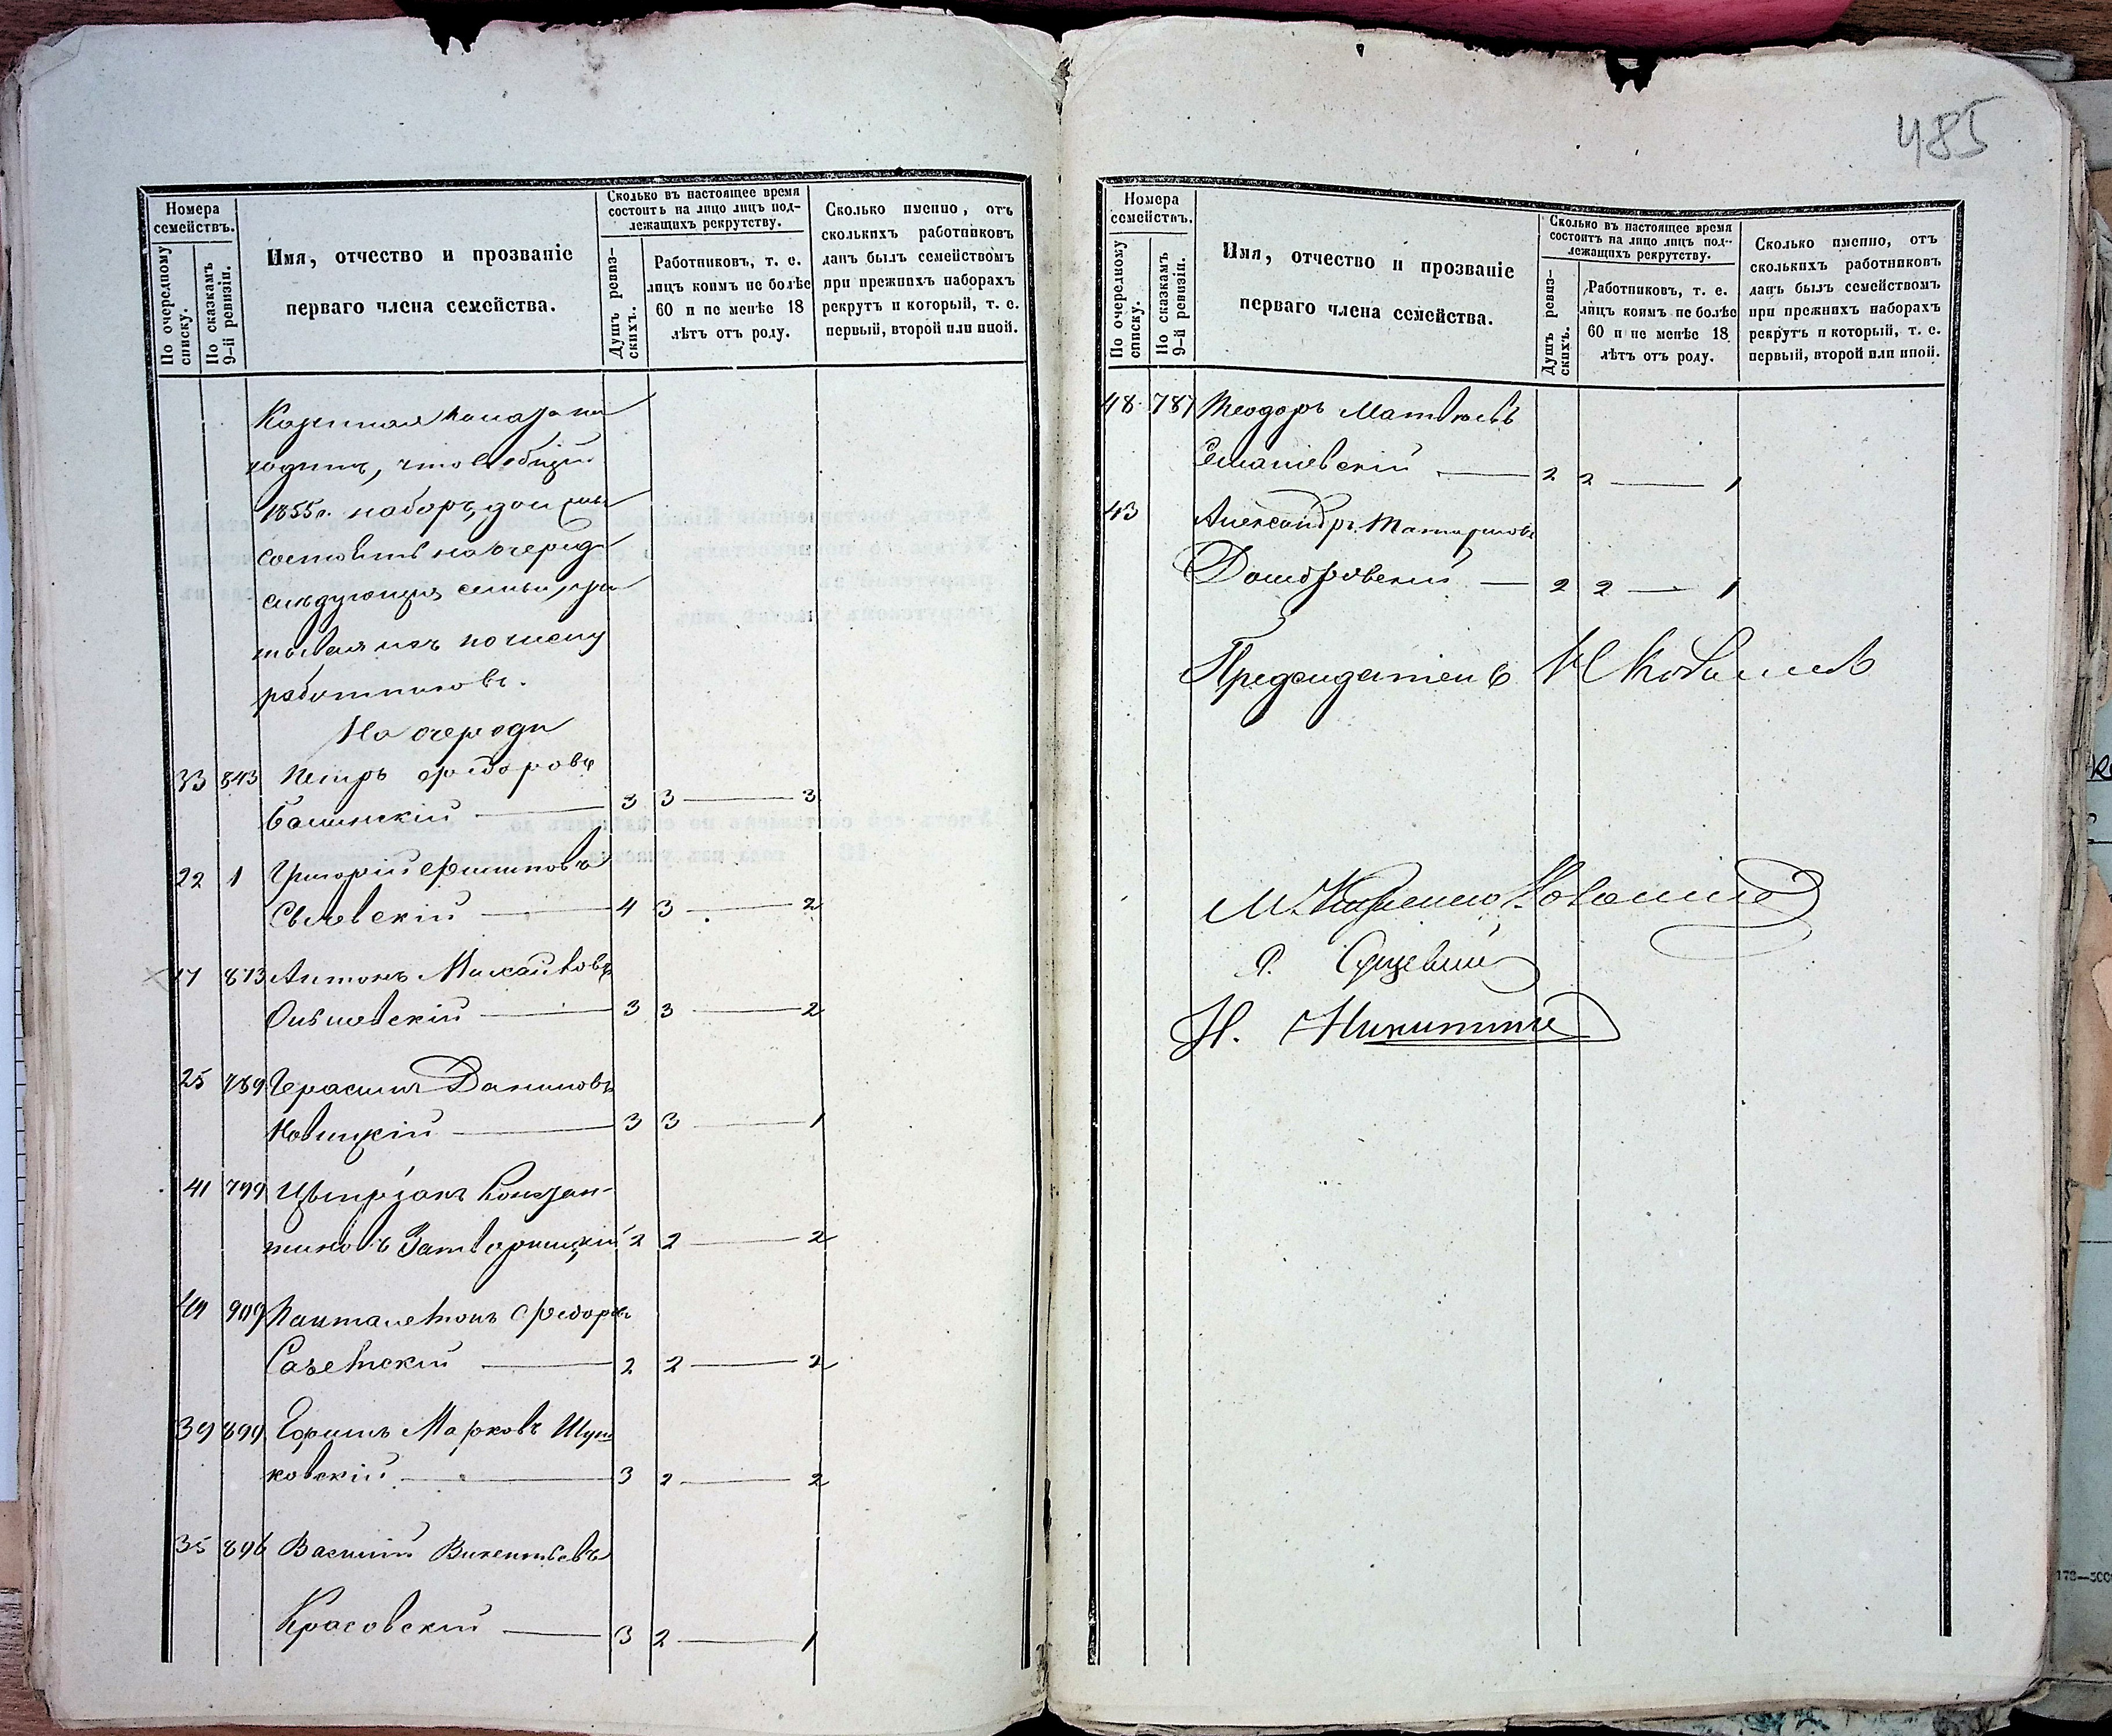 485
Номера
семействъ.
По очередному
списку.
По сказкамъ
9-й ревизіи.
Имя, отчество и прозваніе
перваго члена семейства.
Сколько въ настоящее время
состоитъ на лицо лицъ под-
лежащихъ рекрутству.
Душъ ревиз-
скихъ.
Работниковъ, т. е.
лицъ коимъ не болѣе
60 и не менѣе 18
лѣтъ отъ роду.
Сколько именно, отъ
сколькихъ работниковъ
данъ былъ семействомъ
при прежнихъ наборахъ
рекрутъ и который, т. е.
первый, второй или иной.
Казенная Палата на
ходитъ, что въ общій
1855 г. наборъ, должны
состоять на очереди
слѣдующія семьи,
по числу
работниковъ.
На очереди
33 843 Петръ Федоровъ
3 3 — 3
22 1 Григорій Филиповъ
4 3 — 2
17 873 Антонъ Михайловъ
3 3 — 2
25 789 Герасимъ Даниловъ
Новицкій — 3 3 — 1
41 799 Константи-
новъ 2 2 — 2
909 Пантелеймонъ Федоровъ
2 2 — 2
39 899 Ефимъ Марковъ Шуш
ковскій — 3 2 — 2
35 896 Василій Викентьевъ
Красовскій — 3 2 — 1
Номера
семействъ.
По очередному
списку.
По сказкамъ
9-й ревизіи.
Имя, отчество и прозваніе
перваго члена семейства.
Сколько въ настоящее время
состоитъ на лицо лицъ под-
лежащихъ рекрутству.
Душъ ревиз-
скихъ.
Работниковъ, т. е.
лицъ коимъ не болѣе
60 и не менѣе 18
лѣтъ отъ роду.
Сколько именно, отъ
сколькихъ работниковъ
данъ былъ семействомъ
при прежнихъ наборахъ
рекрутъ и который, т. е.
первый, второй или иной.
48 787 Теодоръ Матвѣевъ
Семашевскій — 2 2 — 1
43 Александръ
Домбровскій — 2 2 — 1
Предсидатель
Н. Никитинъ